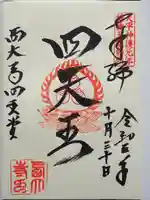 奉拝
令和三年
十月三十日
四天王
西大寺四王堂